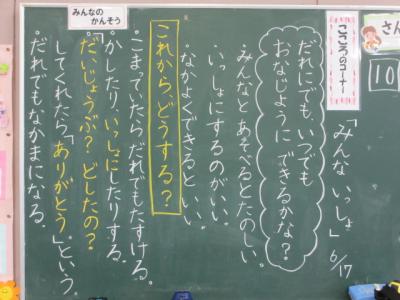 さん
10
こころのコーナー
「みんな いっしょ」 6/17
だれにでも、いつでも
おなじように できるかな？
・みんなと あそべるとたのしい。
・いっしょにするのがいい。
・なかよくできると いい。
これから、どうする？
・こまっていたら だれでもたすける。
・かしたり、いっしょにしたりする。
・「だいじょうぶ？ どしたの？」
・してくれたら、「ありがとう」という。
・だれでもなかまになる。
みんなの
かんそう